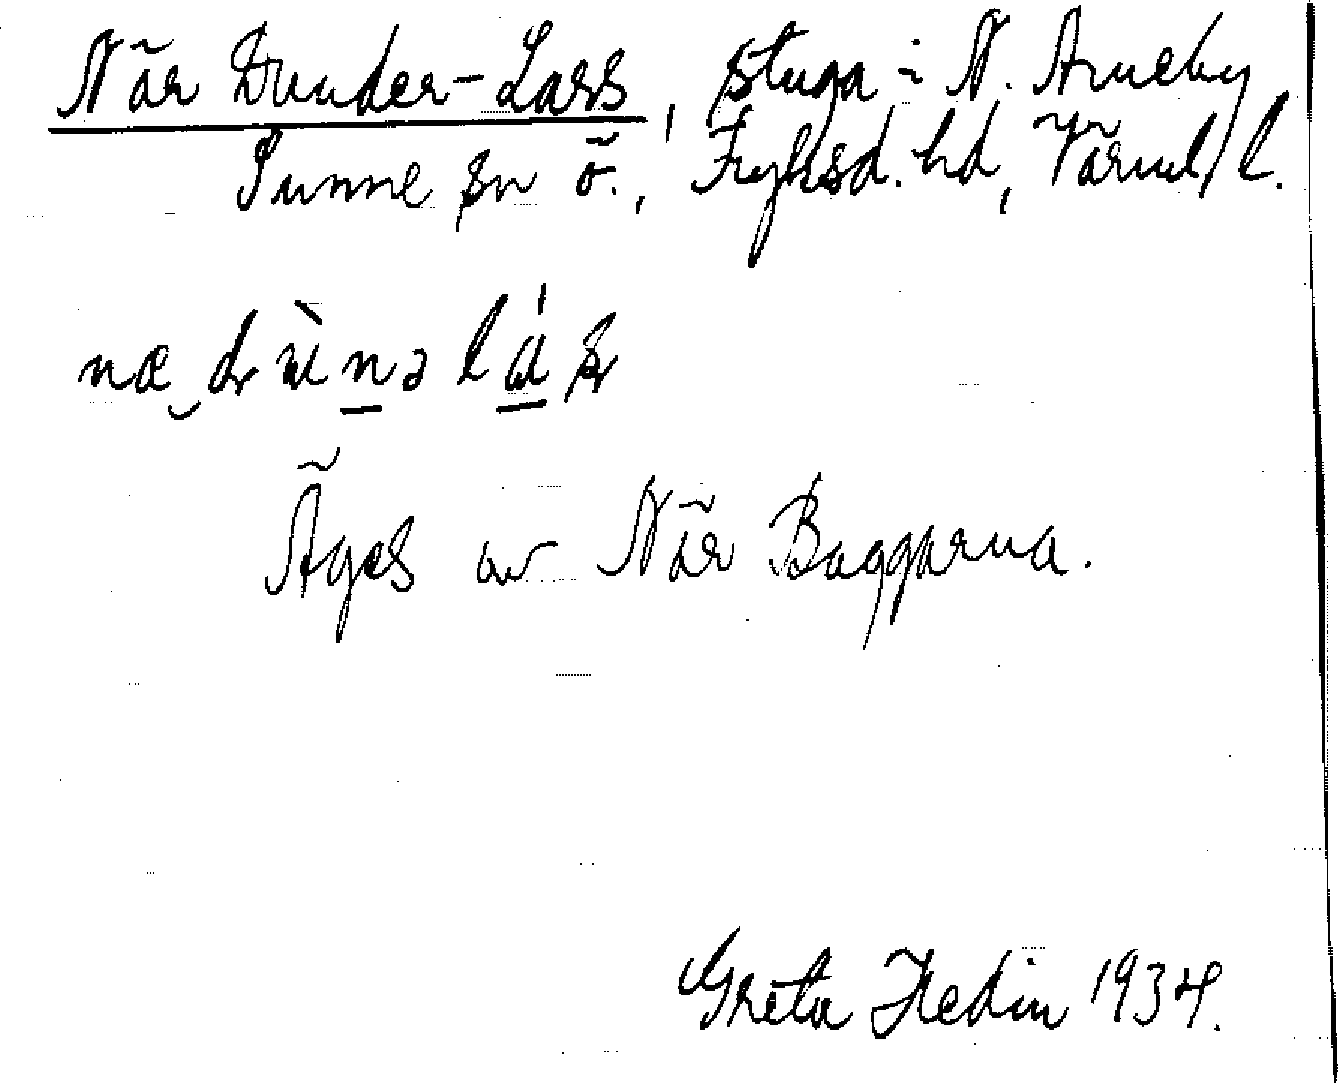 När Dunder-Lars, stuga i N. Årneby
Sunne sn ö., Fryksd. hd, Värml. l.
Äges av När Baggarna.
Greta Hedin 1934.